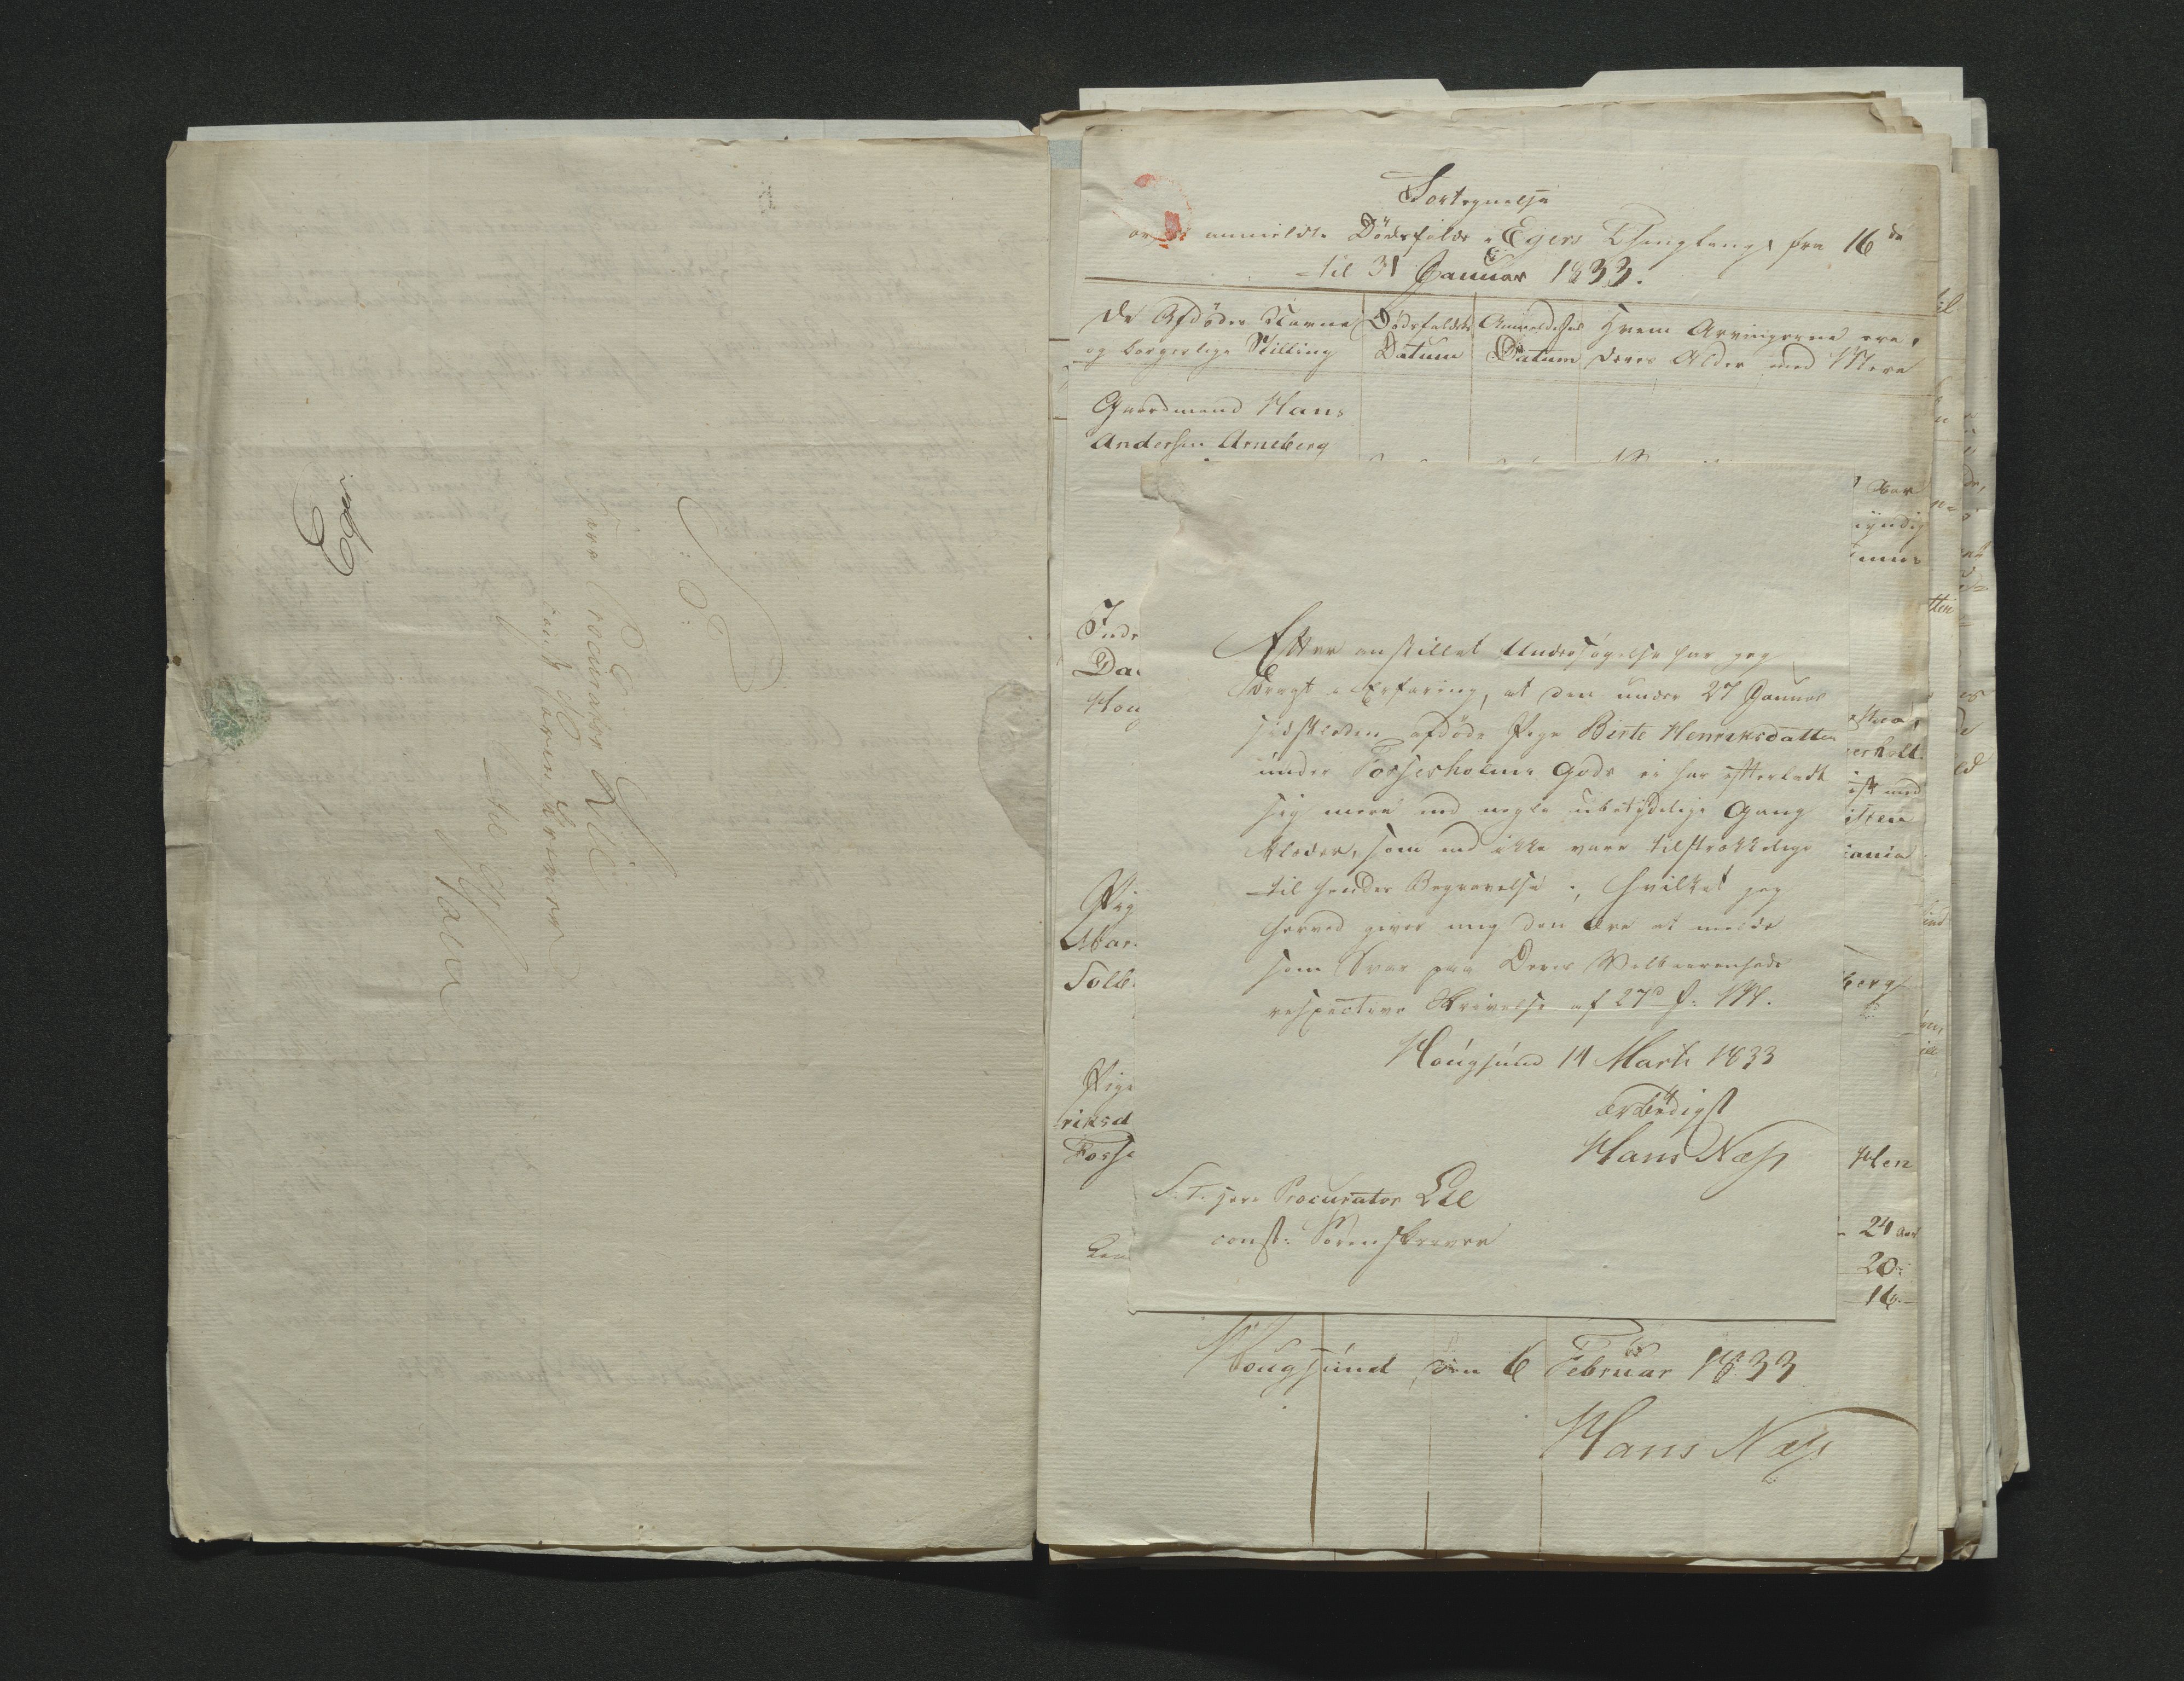 S: T:
Herr Procurator Lie
const: Sorenskriver
paa
Eger
Fortegnelse
over anmeldte Dödsfalde i Egers Thinglaug fra 16de
til 31 Januar 1833.
De Afdödes Navne
og borgerlige Stilling
Dödsfaldets
Datum
Anmeldelses
Datum
Hvem Arvingerne ere,
deres Alder med Mere
Gaardmand Hans
Andersen Arneberg
Inds
Da
Hou
Pig
Mar
Solb
Pige
riksd
Fosse
yndig
erholt
ist med
isten
iania
berg
Hen
24 Aar
20
16
Efter anstillet Undersögelse har jeg
bragt i Erfaring, at den under 27 Januar
sidstleden afdöde Pige Birte Henriksdatter
under Fossesholms Gods ei har efterladt
sig mere end nogle ubetydelige Gang
klæder, som end ikke vare tilstrækkelige
til hendes Begravelse; hvilket jeg
herved giver mig den Ære at melde
som Svar paa Deres Velbaarenheds
respective Skrivelse af 27d f: M.
Hougsund 14 Marti 1833
ærbödigst
Hans Næss
S. T. Herr Procurator Lie
const: Sorenskriver
Hougsund den 6 Februar 1833
Hans Næss